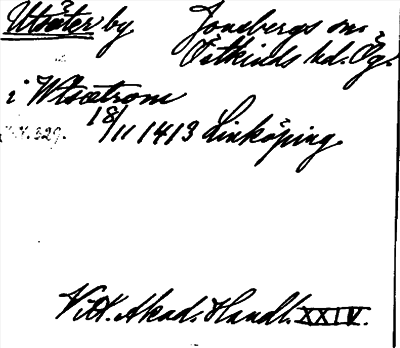 Utsäter by Jonsbergs sn.
Östkinds hd. Ög.
i Wtsætrom
18/11 1413 Linköping.
329.
Vitt. Akad. Handl. XXIV.